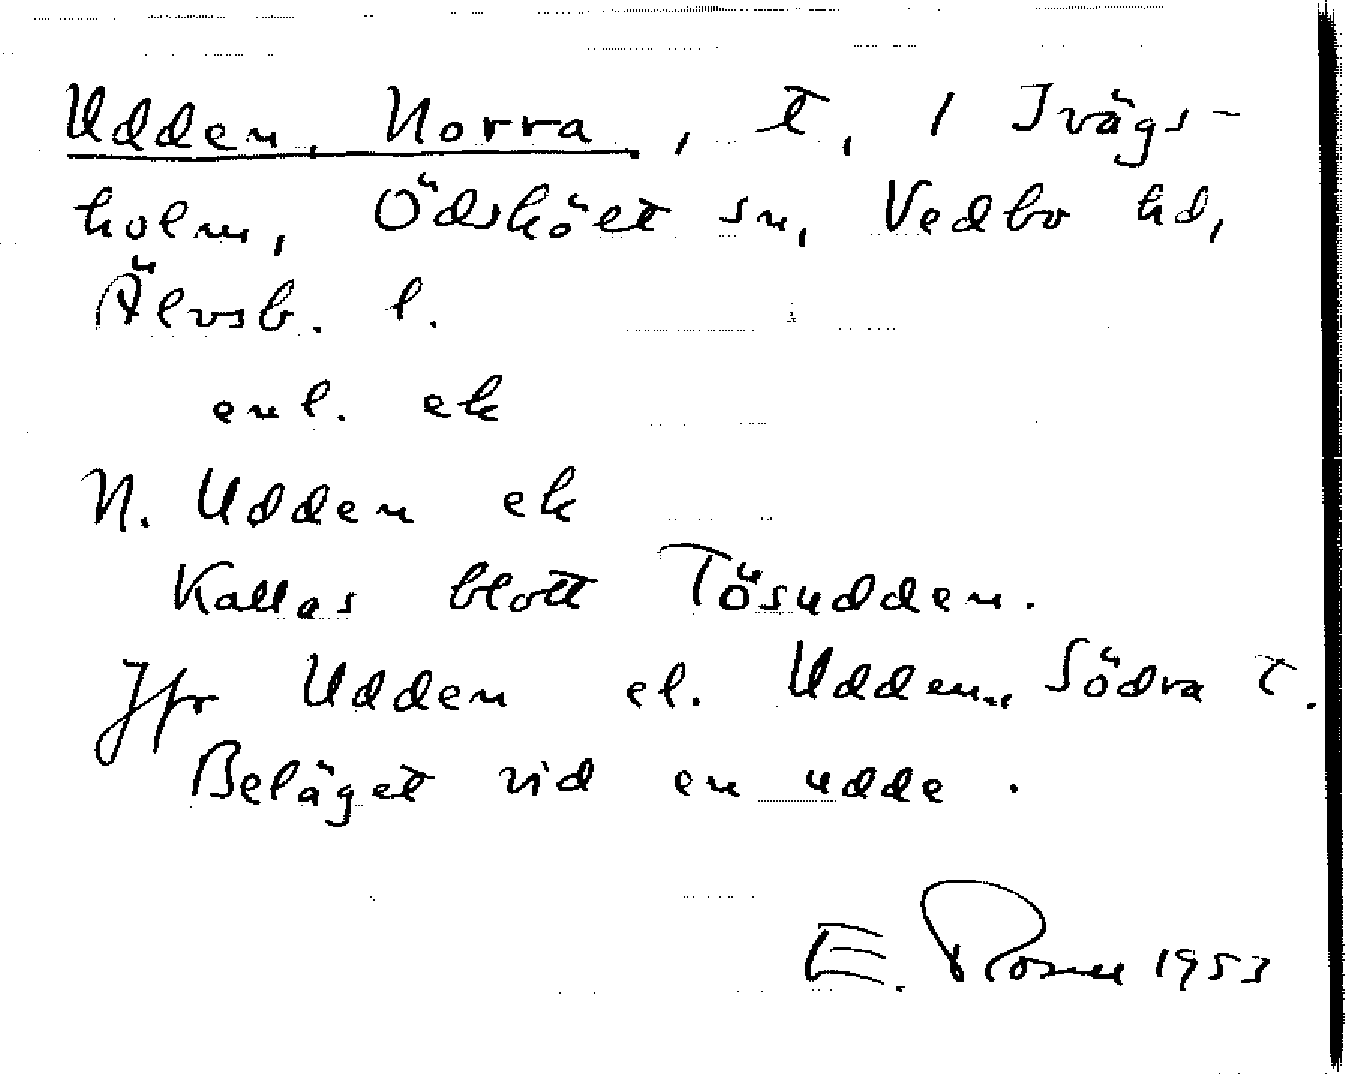 Udden, Norra, t, 1 Ivägs-
holm, Ödskölt sn, Vedbo hd,
Älvsb. l.
enl. ek
N. Udden ek
Kallas blott Tösudden.
Jfr Udden el. Udden, Södra t.
Beläget vid en udde.
E. Rosell 1953